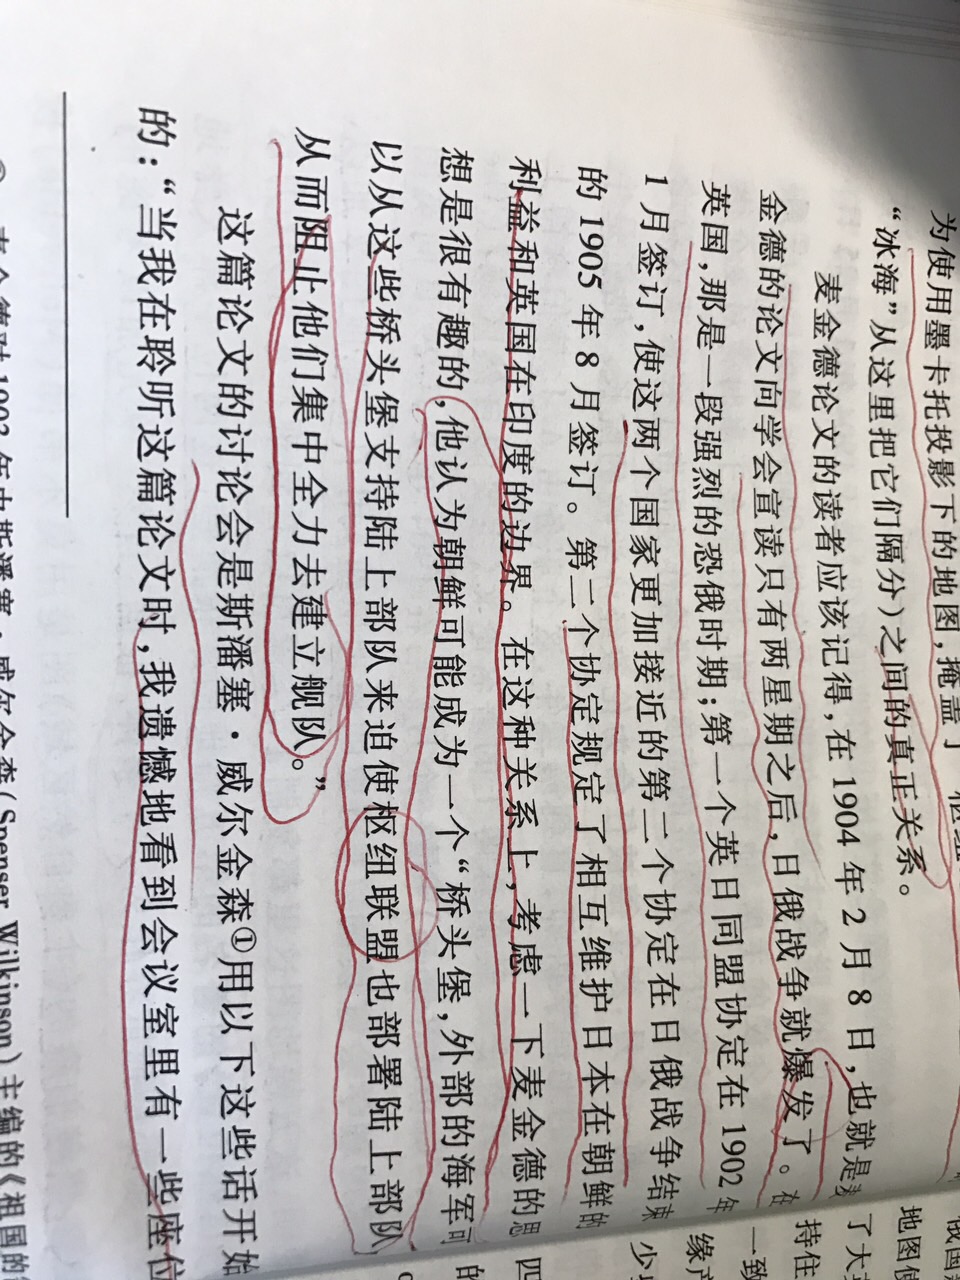 为使用墨卡托投影下的地图，掩盖了
“冰海”从这里把它们隔分）之间的真正关系。
麦金德论文的读者应该记得，在 1904 年 2 月 8 日，也就是
金德的论文向学会宣读只有两星期之后，日俄战争就爆发了。在
英国，那是一段强烈的恐俄时期；第一个英日同盟协定在 1902 年
1 月签订，使这两个国家更加接近的第二个协定在日俄战争结束
的 1905 年 8 月签订。第二个协定规定了相互维护日本在朝鲜的
利益和英国在印度的边界。在这种关系上，考虑一下麦金德的思
想是很有趣的，他认为朝鲜可能成为一个“桥头堡，外部的海军可
以从这些桥头堡支持陆上部队来迫使枢纽联盟也部署陆上部队
从而阻止他们集中全力去建立舰队。”
这篇论文的讨论会是斯潘塞·威尔金森①用以下这些话开始
的：“当我在聆听这篇论文时，我遗憾地看到会议室里有一些座位
年由斯潘塞·威尔金森(Spenser Wilkinson)主编的《祖国的
地图
了大
持住
一致
缘产
少
的
四